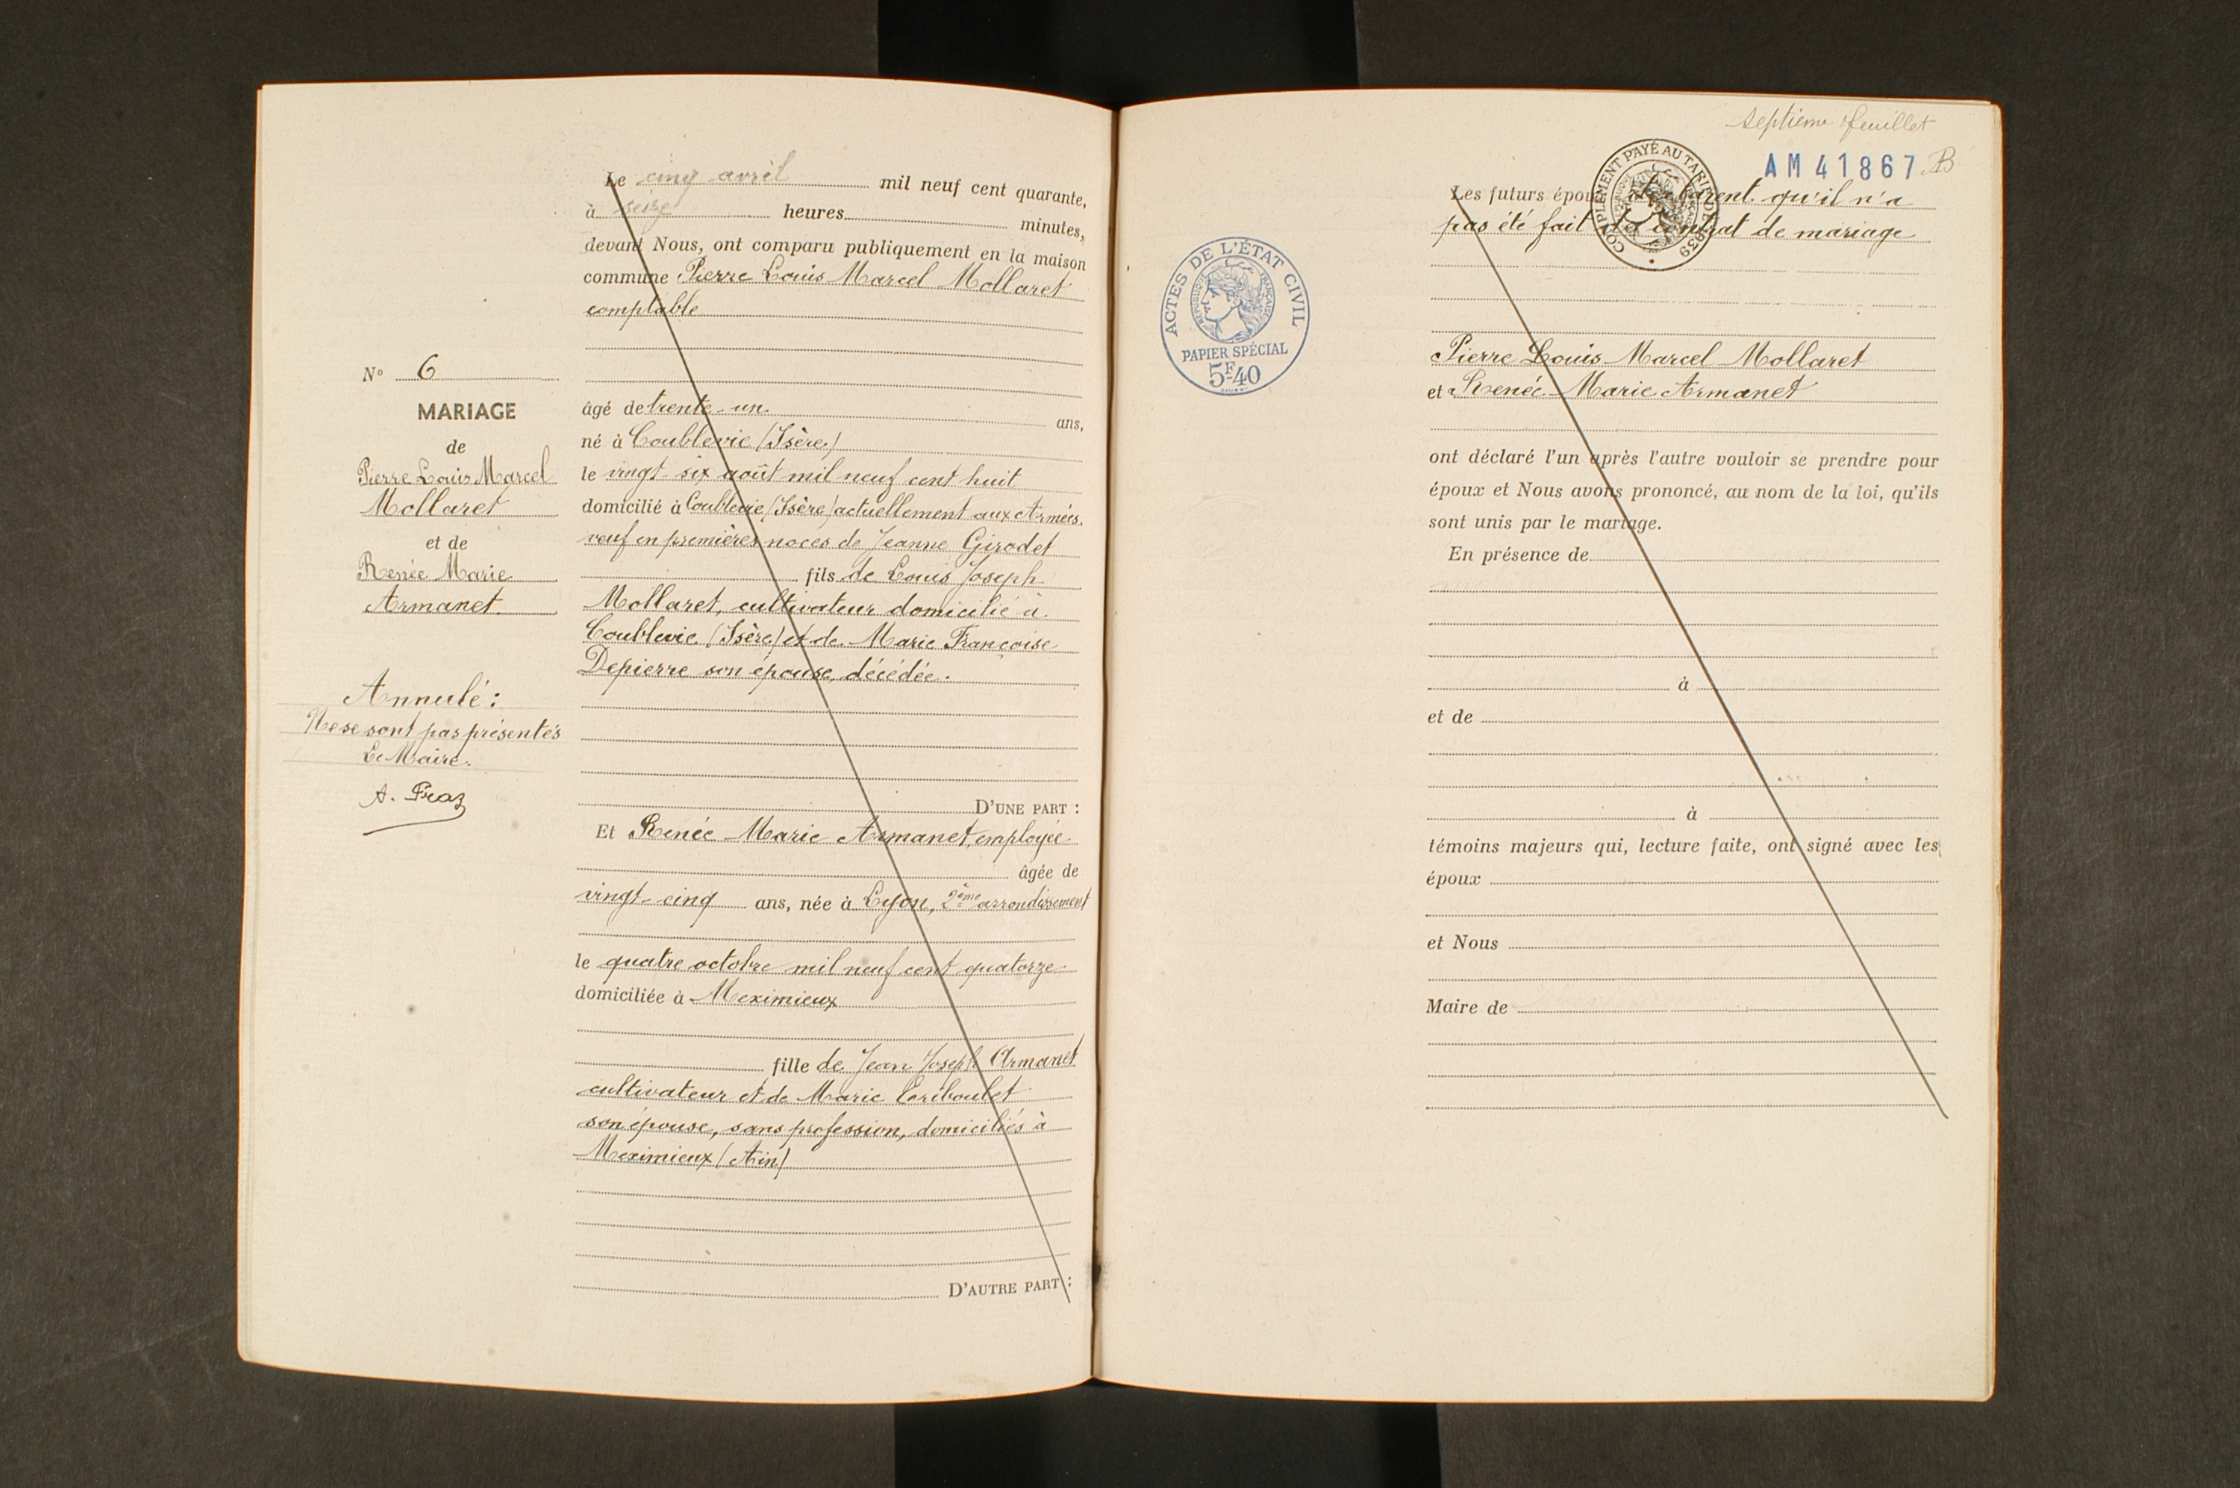 Le cinq avril mil neuf cent quarante,
à seize heures minutes,
devant Nous, ont comparu publiquement en la maison
commune Pierre Louis Marcel Mollaret
comptable
N° 6
MARIAGE
de
Pierre Louis Marcel
Mollaret
et de
Renée Marie
Armanet.
Annulé :
Ne se sont pas présentés
Le Maire.
âgé de trente-un ans,
né à Coublevie (Isère)
le vingt-six août mil neuf cent huit
domicilié à Coublevie (Isère) actuellement aux Armées.
veuf en premières noces de Jeanne Girodet
fils de Louis Joseph
Mollaret, cultivateur domicilié à
Coublevie (Isère) et de Marie Françoise
Depierre son épouse, décédée.
D'UNE PART :
Et Renée Marie Armanet, employée
âgée de
vingt-cinq ans, née à Lyon, 2ème arrondissement
le quatre octobre mil neuf cent quatorze
domiciliée à Meximieux
fille de Jean Joseph Armanet
cultivateur et de Marie Cariboulet
son épouse, sans profession, domiciliés à
Meximieux (Ain)
D'AUTRE PART :
septième feuillet
AM 41867 B
COMPLÉMENT PAYÉ AU TARIF DE 1939
ACTES DE L'ÉTAT CIVIL
RÉPUBLIQUE FRANÇAISE
PAPIER SPÉCIAL
5F.40
Les futurs époux déclarent qu'il n'a
pas été fait de contrat de mariage
Pierre Louis Marcel Mollaret
et Renée Marie Armanet
ont déclaré l'un après l'autre vouloir se prendre pour
époux et Nous avons prononcé, au nom de la loi, qu'ils
sont unis par le mariage.
En présence de
à
et de
à
témoins majeurs qui, lecture faite, ont signé avec les
époux
et Nous
Maire de